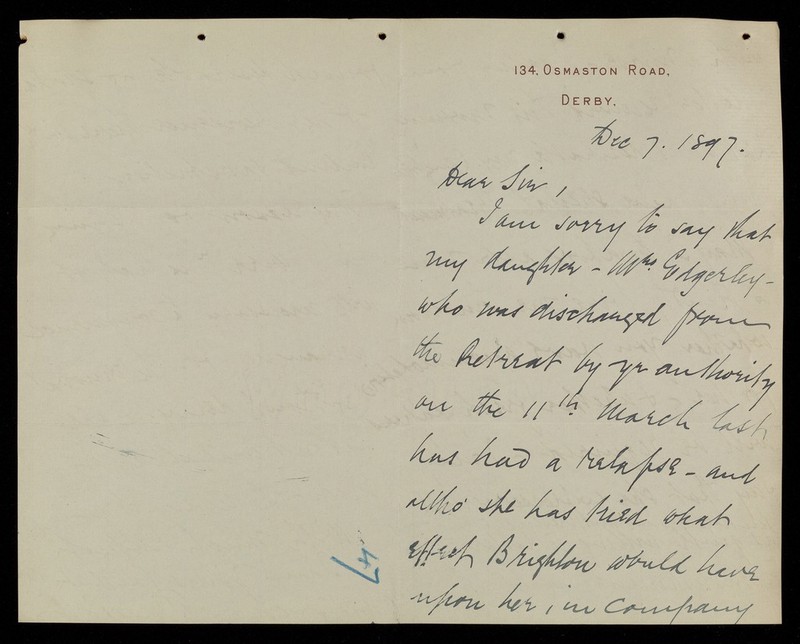 134, OSMASTON ROAD,
DERBY.
Dec 7. 1897.
Dear Sir,
I am sorry to say that
my daughter - Mrs. Edgerley -
who was discharged from
the Retreat by yr authority
on the 11th March last,
has had a relapse - and
altho' she has tried what
effect Brighton would have
upon her, in company